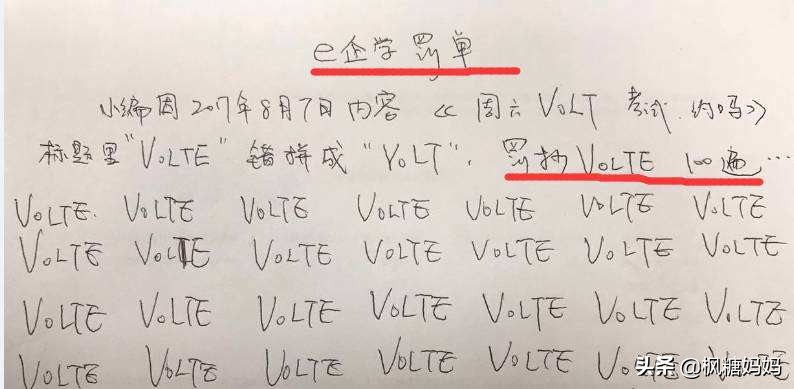 e企学罚单
小编因2017年8月7日内容《周六VoLT考试.约吗》
标题里"VoLTE"错拼成"VOLT". 罚抄VoLTE 100遍…
VoLTE. VoLTE VoLTE VoLTE VoLTE VoLTE VoLTE
VoLTE VoLTE VoLTE VoLTE VoLTE VoLTE VoLTE
VoLTE VoLTE VoLTE VoLTE VoLTE VoLTE VoLTE
VoLTE VoLTE VoLTE VoLTE VoLTE
头条 @枫糖妈妈